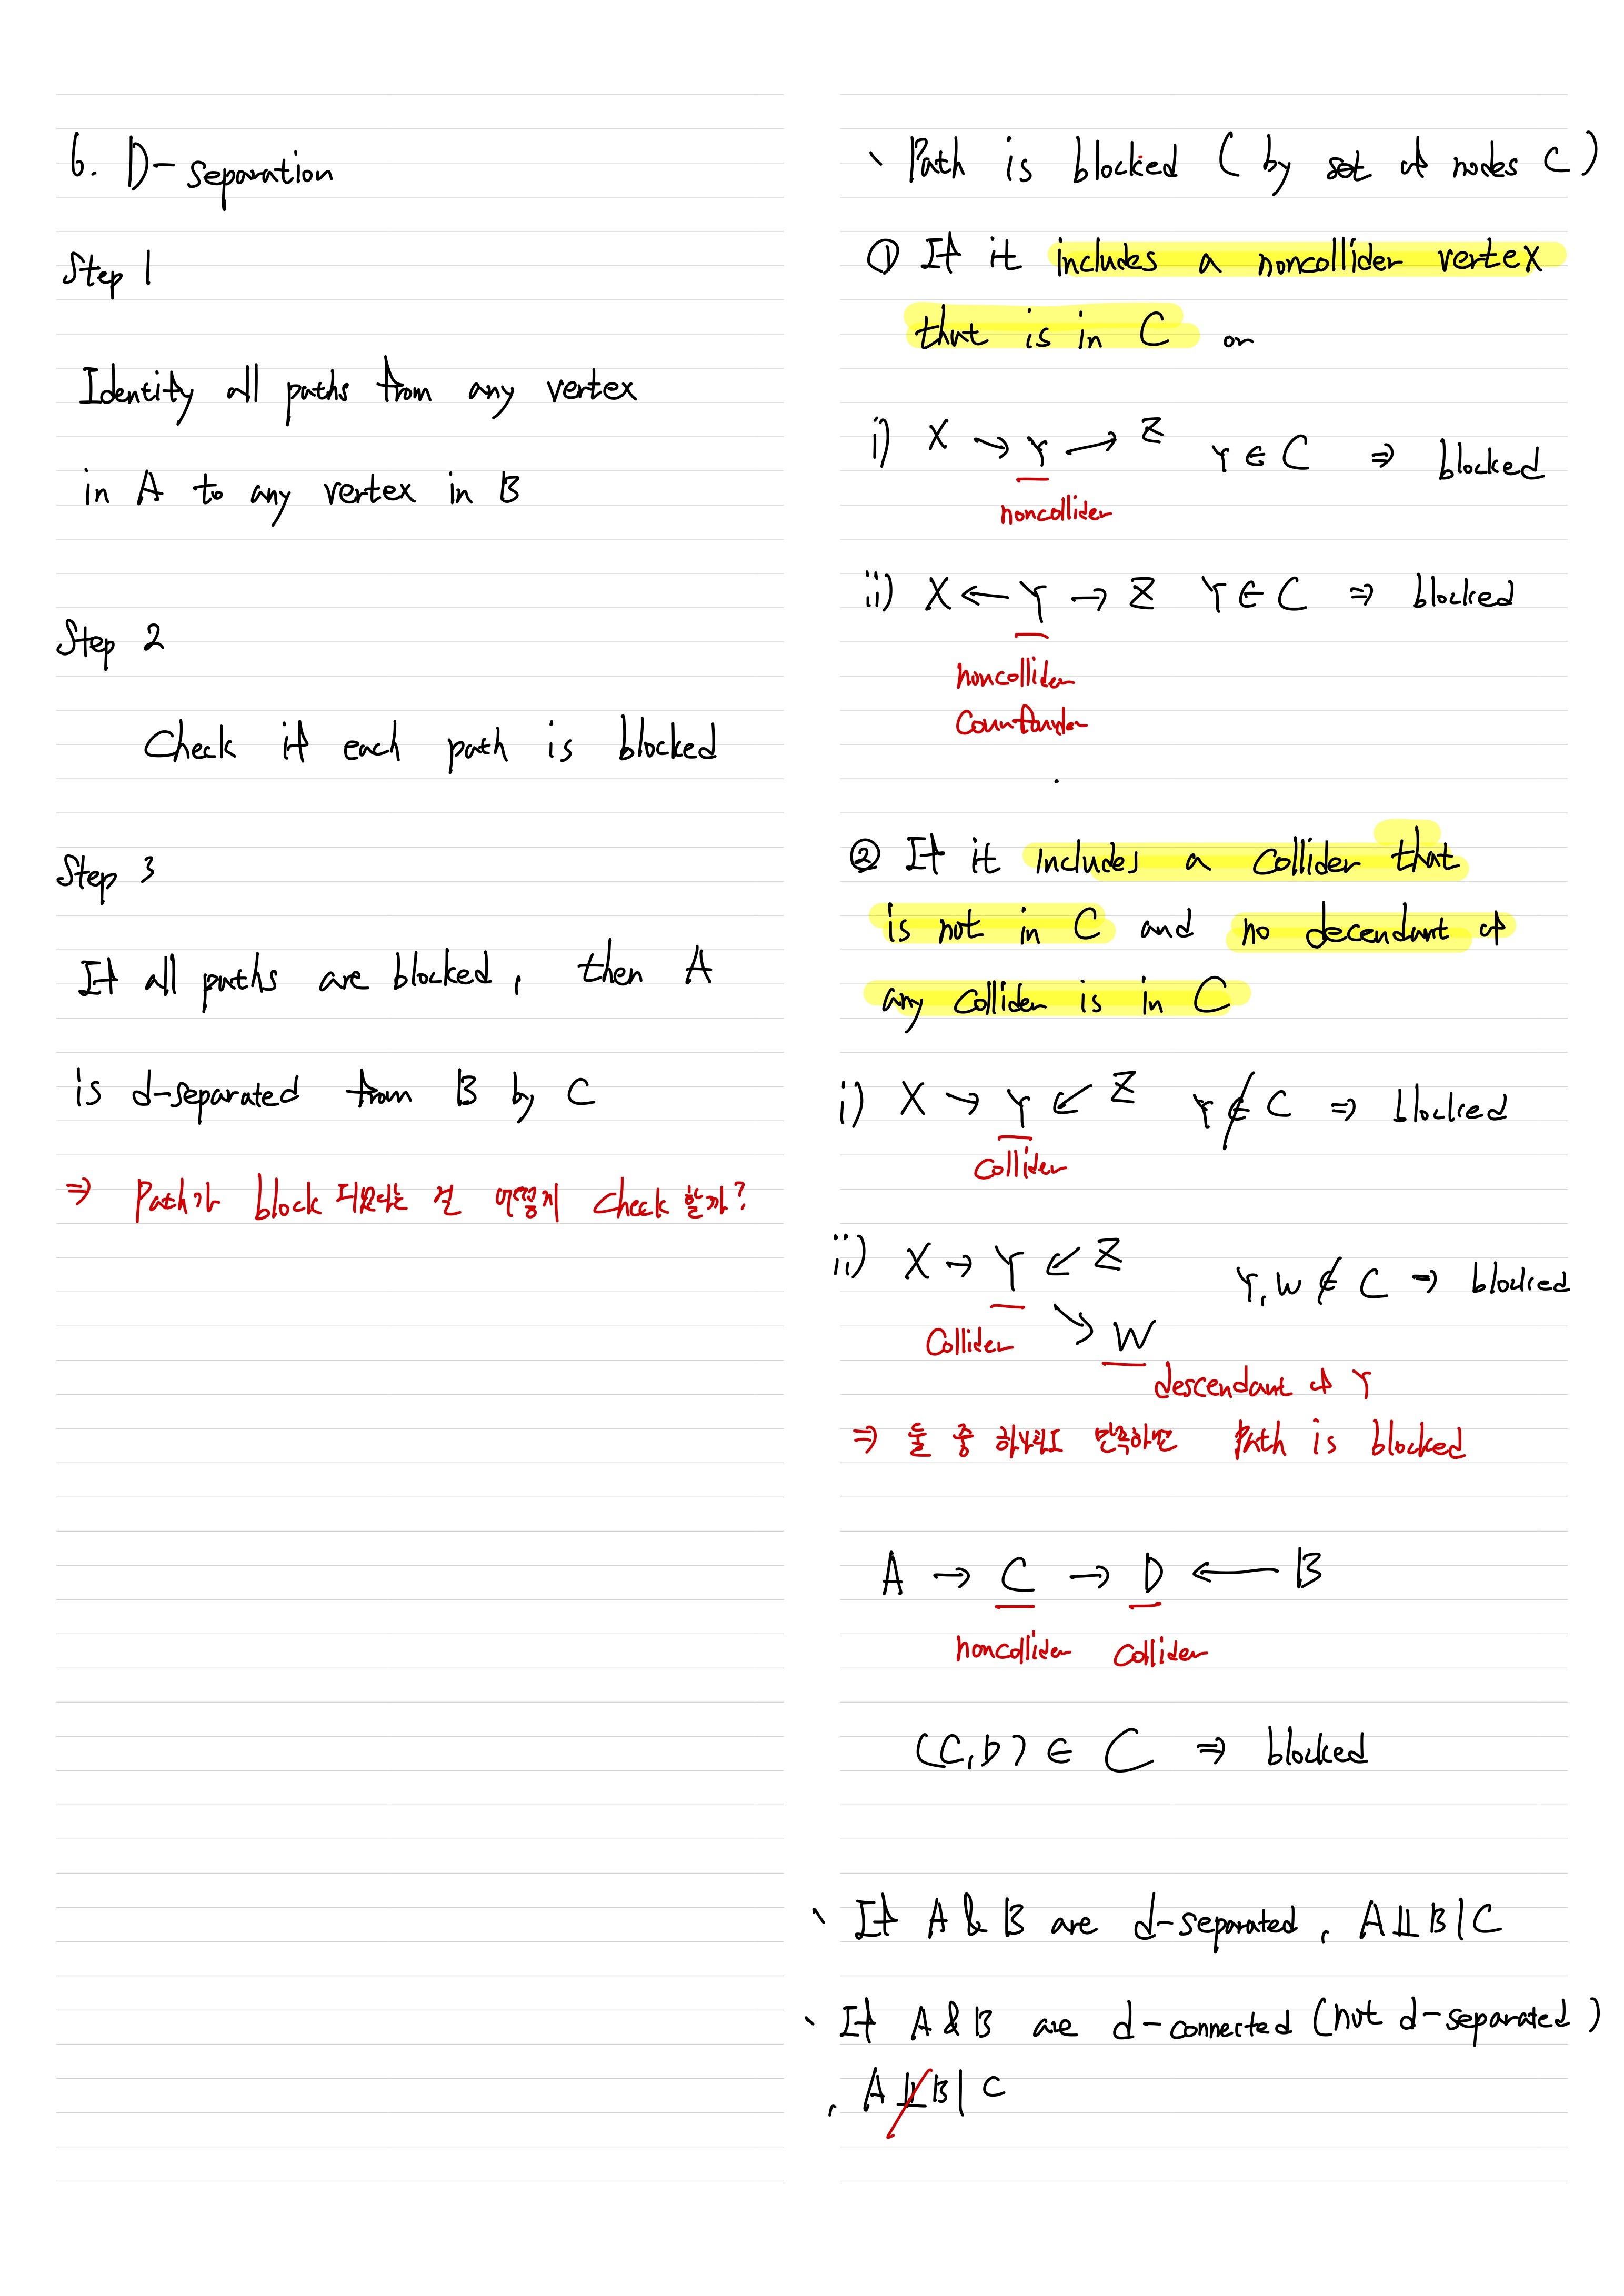 6. D-separation
Step 1
Identify all paths from any vertex
in A to any vertex in B
Step 2
Check if each path is blocked
Step 3
If all paths are blocked, then A
is d-separated from B by C
⇒ Path가 block 되었다는 걸 어떻게 check 할까?
Path is blocked (by set of nodes C)
① If it includes a noncollider vertex
that is in C or
i) X → Y → Z Y ∈ C ⇒ blocked
noncollider
ii) X ← Y → Z Y ∈ C ⇒ blocked
noncollider
② If it includes a collider that
is not in C and no decendant of
any collider is in C
i) X → Y ↙ Z Y ∉ C ⇒ blocked
collider
ii) X → Y ↙ Z Y, W ∉ C ⇒ blocked
collider ↘ W
descendant of Y
⇒ 둘 중 하나라도 만족하면 Path is blocked
A → C → D ← B
noncollider collider
(C, D) ∈ C ⇒ blocked
If A & B are d-separated, A⊥⊥B|C
If A & B are d-connected (not d-separated)
, A⊥̸⊥B|C